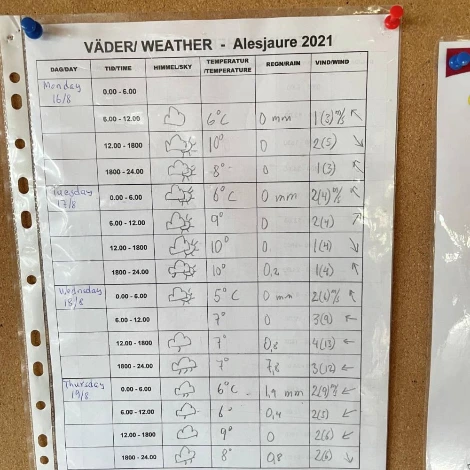 VÄDER/ WEATHER - Alesjaure 2021
DAG/DAY TID/TIME HIMMEL/SKY TEMPERATUR /TEMPERATURE REGN/RAIN VIND/WIND
Monday 16/8 0.00 - 6.00
6.00 - 12.00 6°C 0 mm 1(3) m/s ↖
12.00 - 1800 10° 0 2(5) ↘
1800 - 24.00 8° 0 1(3) ↖
Tuesday 17/8 0.00 - 6.00 6°C 0 mm 2(4) m/s ↖
6.00 - 12.00 9° 0 2(4) ↗
12.00 - 1800 10° 0 1(4) ↘
1800 - 24.00 10° 0,2 1(4) ↖
Wednesday 18/8 0.00 - 6.00 5°C 0 mm 2(6) m/s ↖
6.00 - 12.00 7° 0 3(9) ←
12.00 - 1800 7° 0,8 4(13) ←
1800 - 24.00 7° 7,8 3(12) ←
Thursday 19/8 0.00 - 6.00 6°C 1,9 mm 2(9) m/s ↙
6.00 - 12.00 6° 0,4 2(5) ↙
12.00 - 1800 9° 0 2(6) ↙
1800 - 24.00 8° 0,8 2(6) ↘